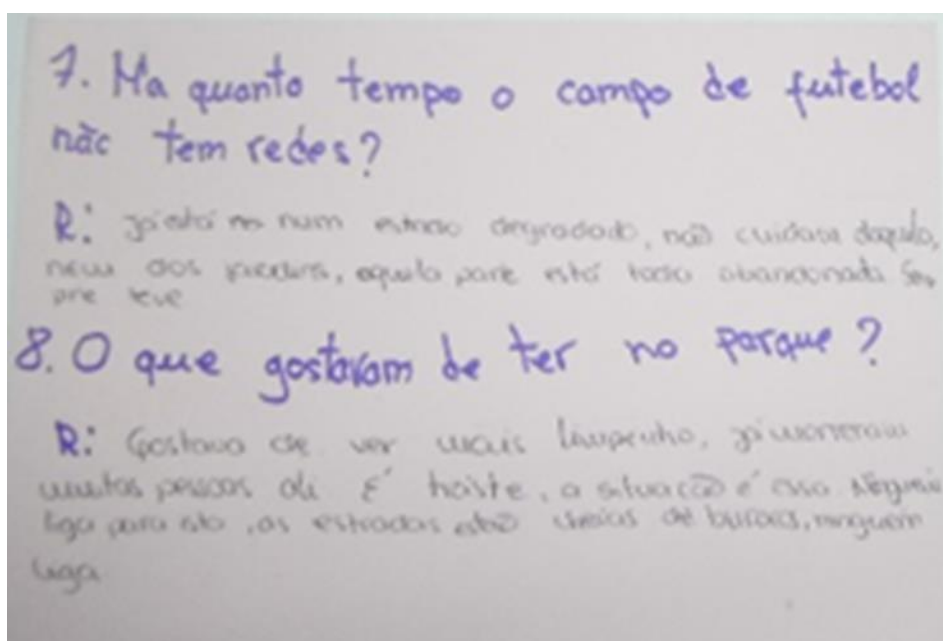 7. Ha quanto tempo o campo de futebol
não tem redes?
R: já está num estado degradado, não cuidam daquilo,
nem dos jardins, aquela parte está toda abandonada Sem
pre teve
8. O que gostavam de ter no parque?
R: Gostava de ver mais limpinho, já morreram
muitas pessoas ali É triste, a situação é essa. Ninguém
liga para isto, as estradas estão cheias de buracos, ninguém
liga